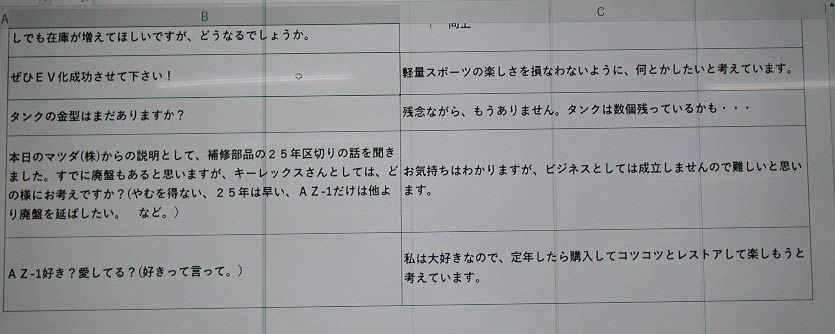 A
B
C
しでも在庫が増えてほしいですが、どうなるでしょうか。
ぜひＥＶ化成功させて下さい！
軽量スポーツの楽しさを損なわないように、何とかしたいと考えています。
タンクの金型はまだありますか？
残念ながら、もうありません。タンクは数個残っているかも・・・
本日のマツダ(株)からの説明として、補修部品の２５年区切りの話を聞き
ました。すでに廃盤もあると思いますが、キーレックスさんとしては、ど
の様にお考えですか？(やむを得ない、２５年は早い、ＡＺ-1だけは他よ
り廃盤を延ばしたい。　など。)
お気持ちはわかりますが、ビジネスとしては成立しませんので難しいと思い
ます。
ＡＺ-1好き？愛してる？(好きって言って。)
私は大好きなので、定年したら購入してコツコツとレストアして楽しもうと
考えています。